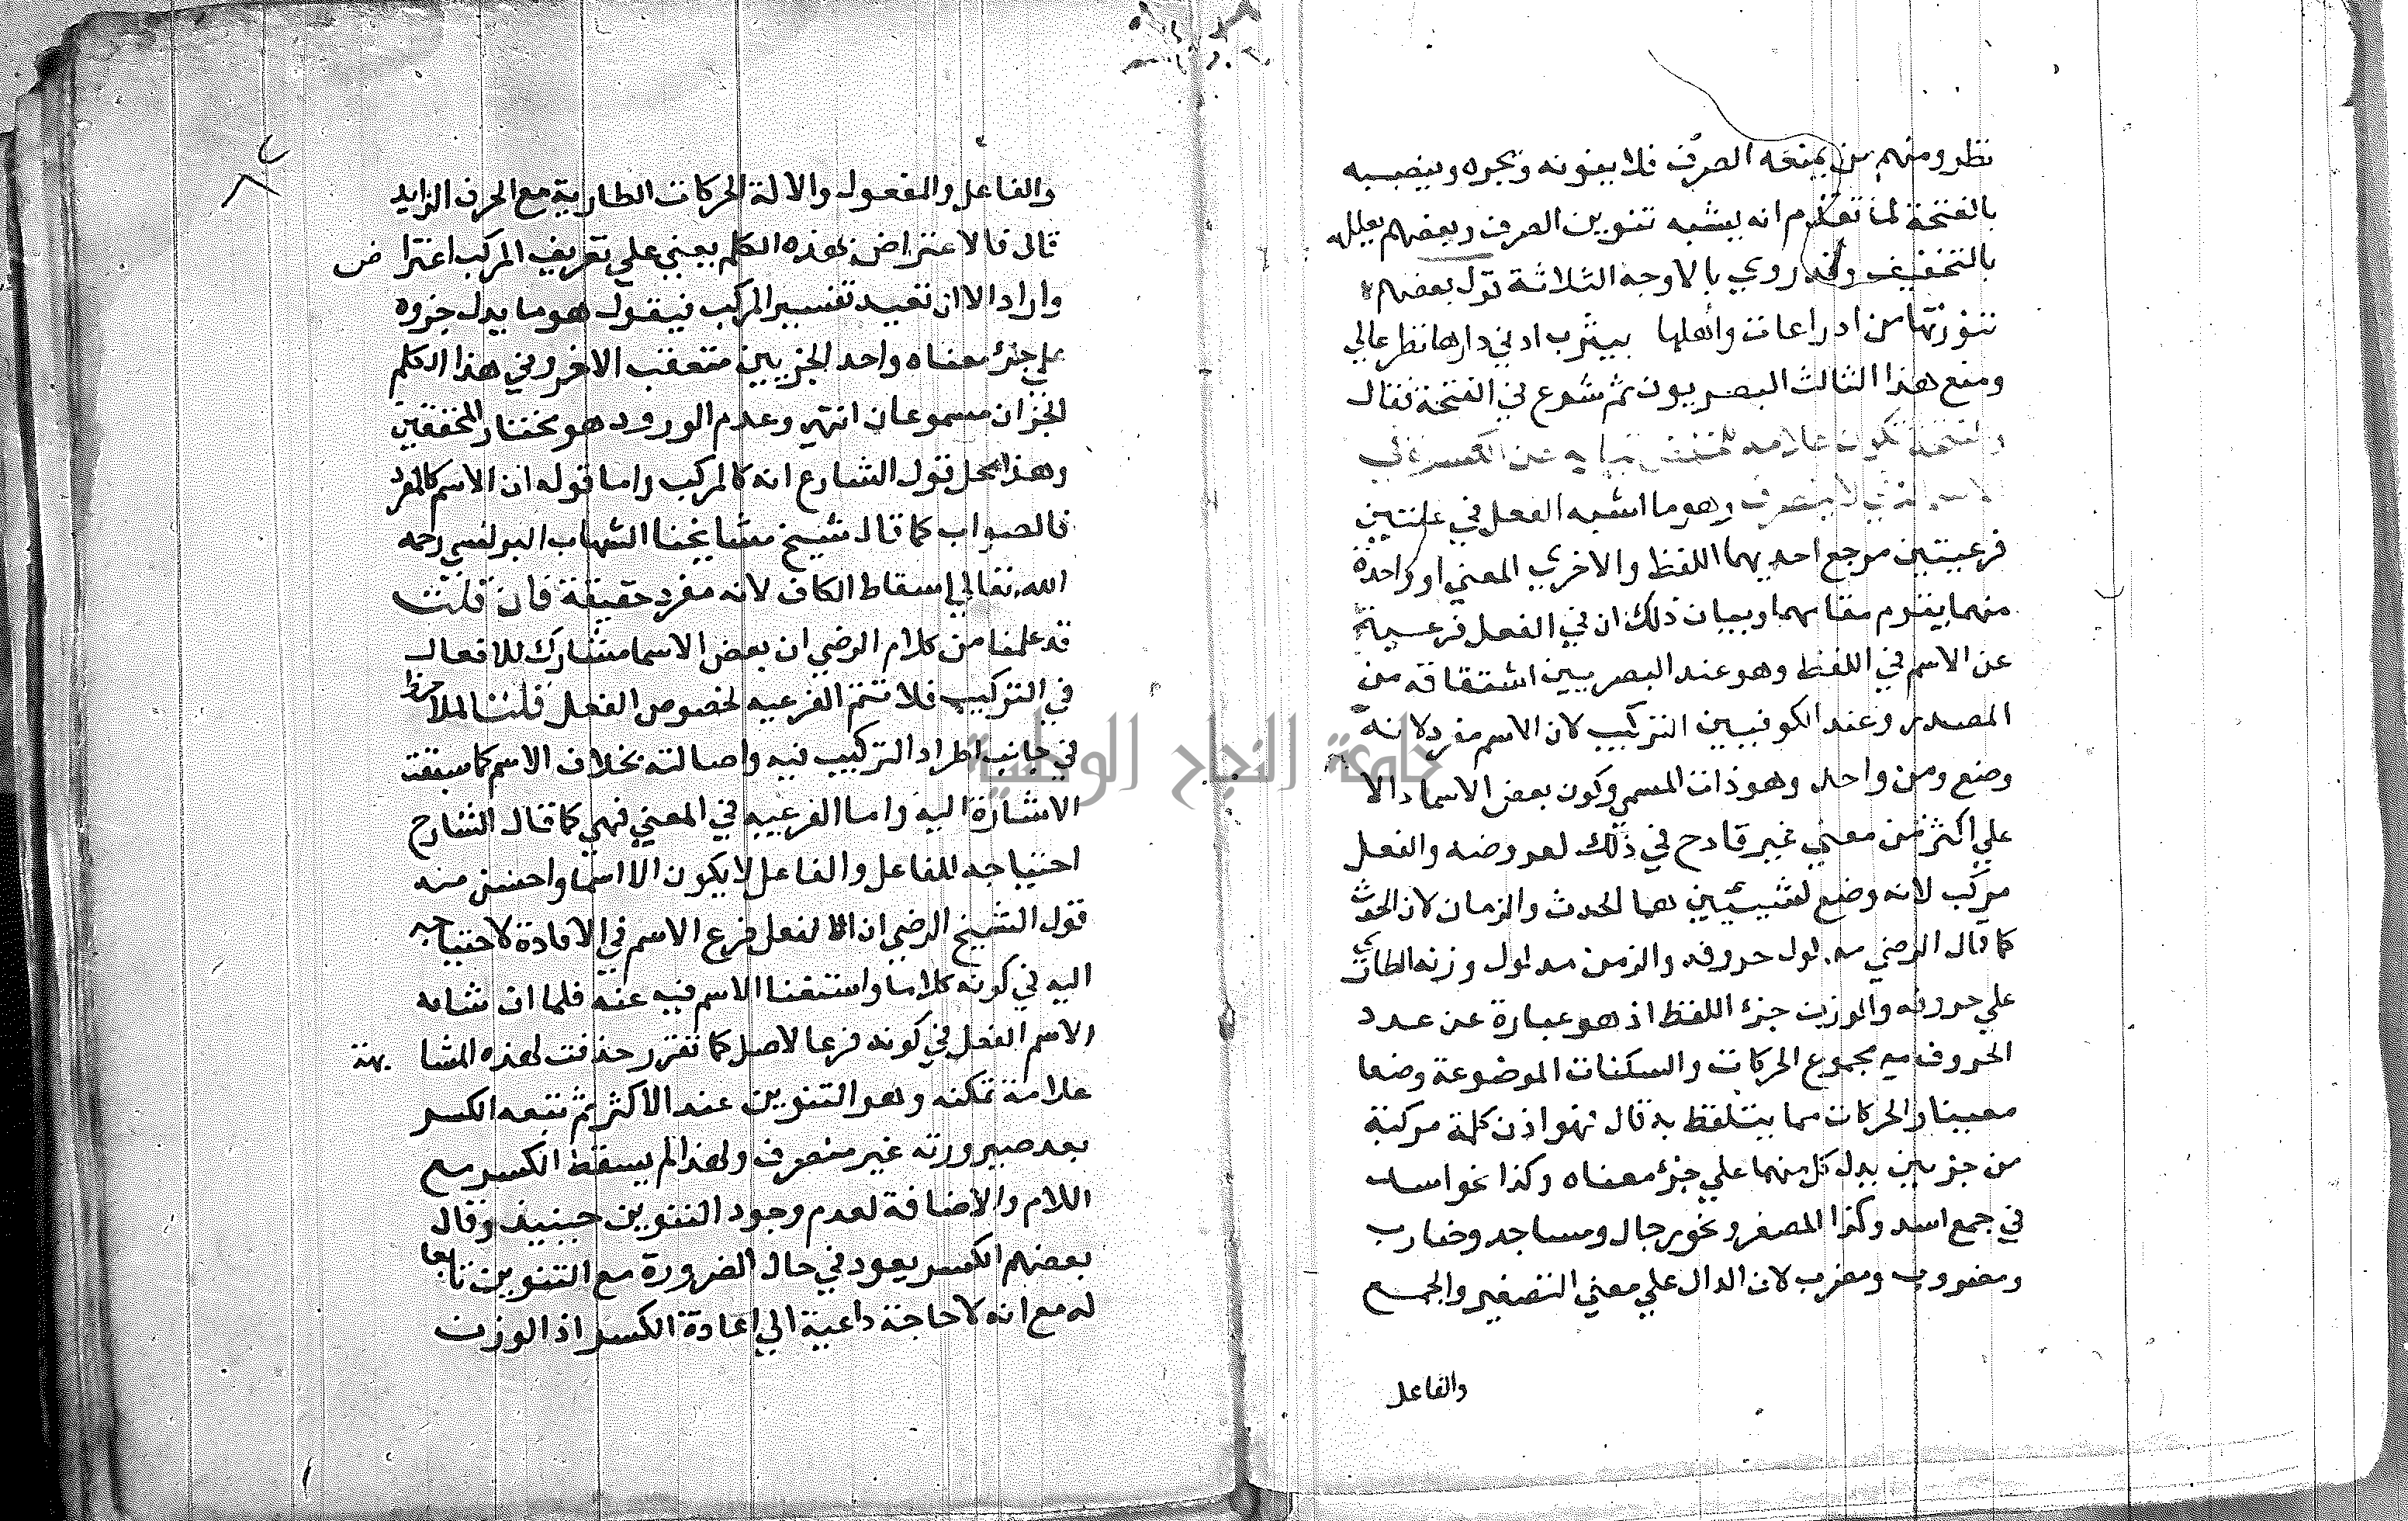 نظر ومنهم من يمنعه الصرف فلا ينونه ويجره وينصبه
بالفتحة لما تقدم انه يشبه تنوين الصرف وبعضهم يعلله
بالتخفيف وقد روي بالاوجه الثلاثة قول بعضهم
تنورتها من ادراعات وأهلها بيثرب ادني دارها نظر عالي
ومنع هذا الثالث البصريون ثم شوع في الفتحة فقال
والفتحة تكون علامة للخفض نيابه عن الكسرة في
الاسم الذي لا ينصرف وهو ما اشبه الفعل في علتين
فرعيتين مرجع احديهما اللفظ والاخري المعني او واحدة
منهما يقوم مقامهما وبيان ذلك ان في الفعل فرعية
عن الاسم في اللفظ وهو عند البصريين اشتقاقه من
المصدر وعند الكوفيين التركيب لان الاسم مفرد لانه
وضع ومن واحد وهو ذات المسمي وكون بعض الاسما دالا
علي اكثر من معني غير قادح في ذلك لعروضه والفعل
مركب لانه وضع لشيئين هما الحدث والزمان لان الحدث
كما قال الرضي مدلول حروفه والزمن مدلول وزنه الطاري
علي حروفه والوزن جزء اللفظ اذ هو عبارة عن عدد
الحروف مع مجموع الحركات والسكنات الموضوعة وضعا
معينا والحركات مما يتلفظ به قال فهو اذن كلمة مركبة
من جزيين يدل كل منهما علي جزء معناه وكذا نحو اسد
في جمع اسد وكذا المصغر ونحو رجال ومساجد وضارب
ومضروب ومضرب لان الدال علي معني التصغير والجمع
والفاعل
والفاعل والمفعول والالة الحركات الطارية مع الحرف الزايد
قال فالاعتراض بهذه الكلم يعني علي تعريف المركب اعتراض
وارد الا ان نقيد تفسير المركب فيقول هو ما يدل جزوه
علي جزء معناه واحد الجزيين متعقب الاخر وفي هذا الكلم
الجزان مسموعان انتهي وعدم الورود هو مختار المحققين
وهذا محل قول الشارع انه كالمركب واما قوله ان الاسم كالمفرد
فالصواب كما قال شيخ مشايخنا الشهاب البولسي رحمه
الله تعالي اسقاط الكاف لانه مفرد حقيقة فان قلت
قد علمنا من كلام الرضي ان بعض الاسما مشارك للافعال
في التركيب فلا تتم الفرعيه لخصوص الفعل قلت الملاحظ
في جانب اطراد التركيب فيه واصالته بخلاف الاسم كما سبقت
الاشارة اليه واما الفرعيه في المعني فهي كما قال الشارح
احتياجه للفاعل والفاعل لا يكون الا اسما واحسن منه
قول الشيخ الرضي ان الفعل فرع الاسم في الافادة لاحتياجه
اليه في كونه كلاما واستغنا الاسم فيه عنه فلما ان شابه
الاسم الفعل في كونه فرعا لاصل كما تقرر حذفت لهذه المشابهة
علامة تمكنه وهو التنوين عند الاكثر ثم تبعه الكسر
بعد صيرورته غير منصرف ولهذا لم يسقط الكسر مع
اللام والاضافة لعدم وجود التنوين حينيذ وقال
بعضهم الكسر يعود في حال الضرورة مع التنوين تابعا
له مع انه لا حاجة داعية الي اعادة الكسر اذ الوزن
جامعة النجاح الوطنية